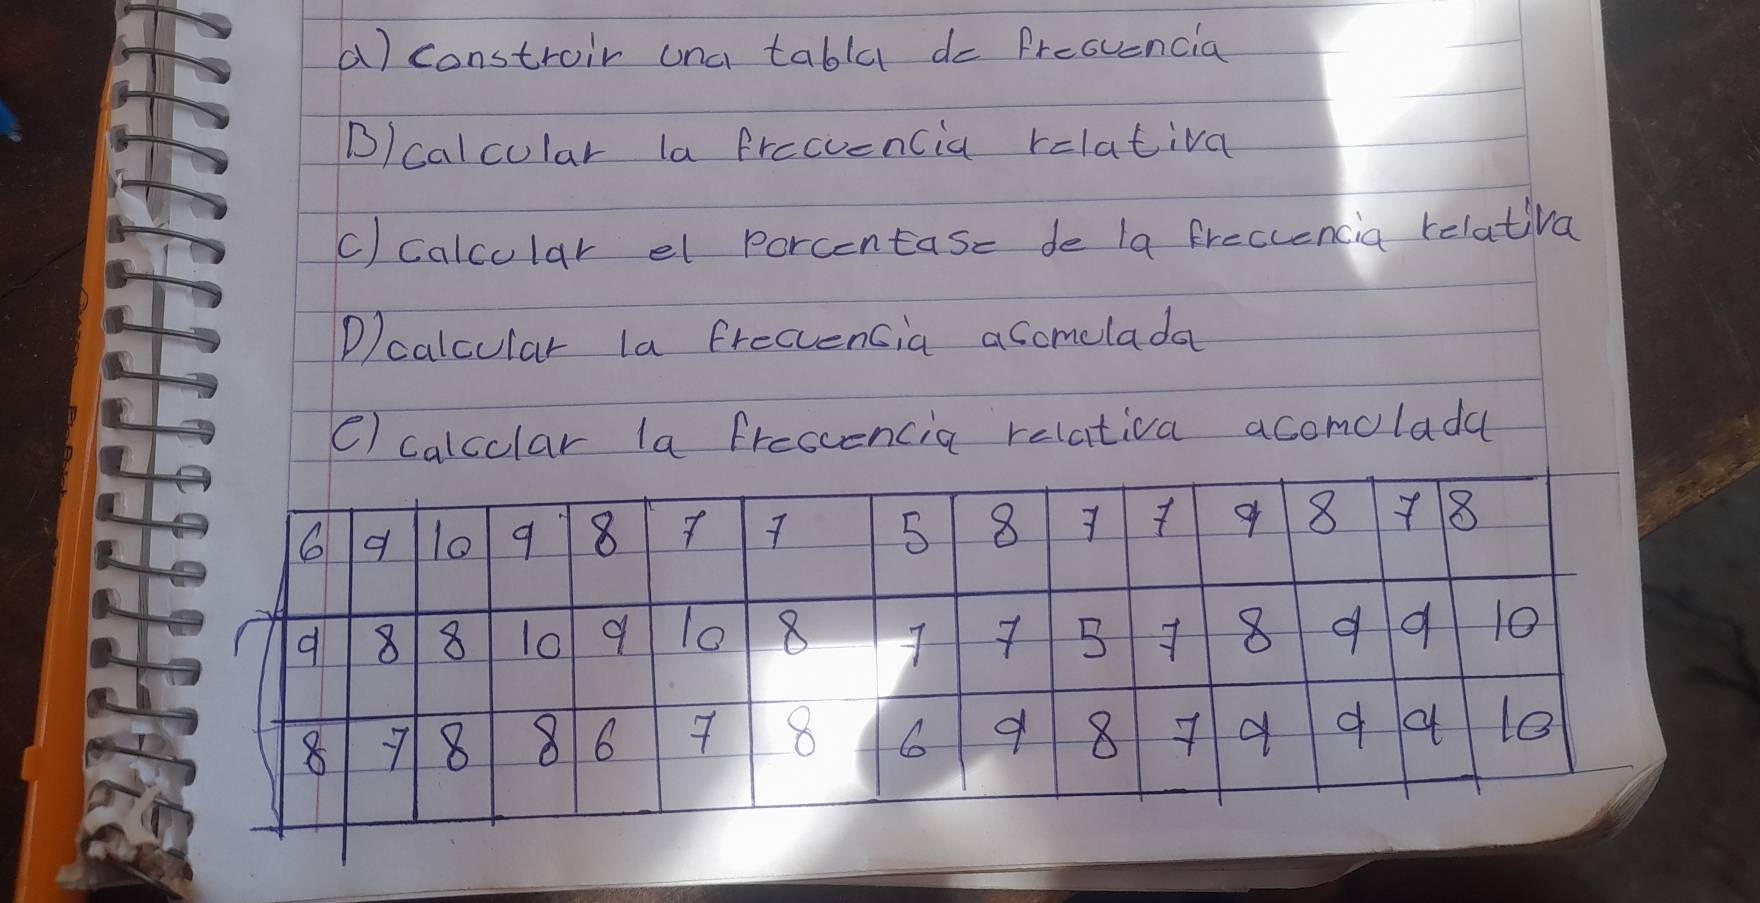 a) construir una tabla de frecuencia
B) calcular la frecuencia relativa
C) calcular el Porcentase de la frecuencia relativa
D) calcular la frecuencia acomulada
e) calcular la frecuencia relativa acomulada
6 9 10 9 8 7 7 5 8 7 7 9 8 7 8
9 8 8 10 9 10 8 7 7 5 7 8 9 9 10
8 7 8 8 6 7 8 6 9 8 7 9 9 9 10